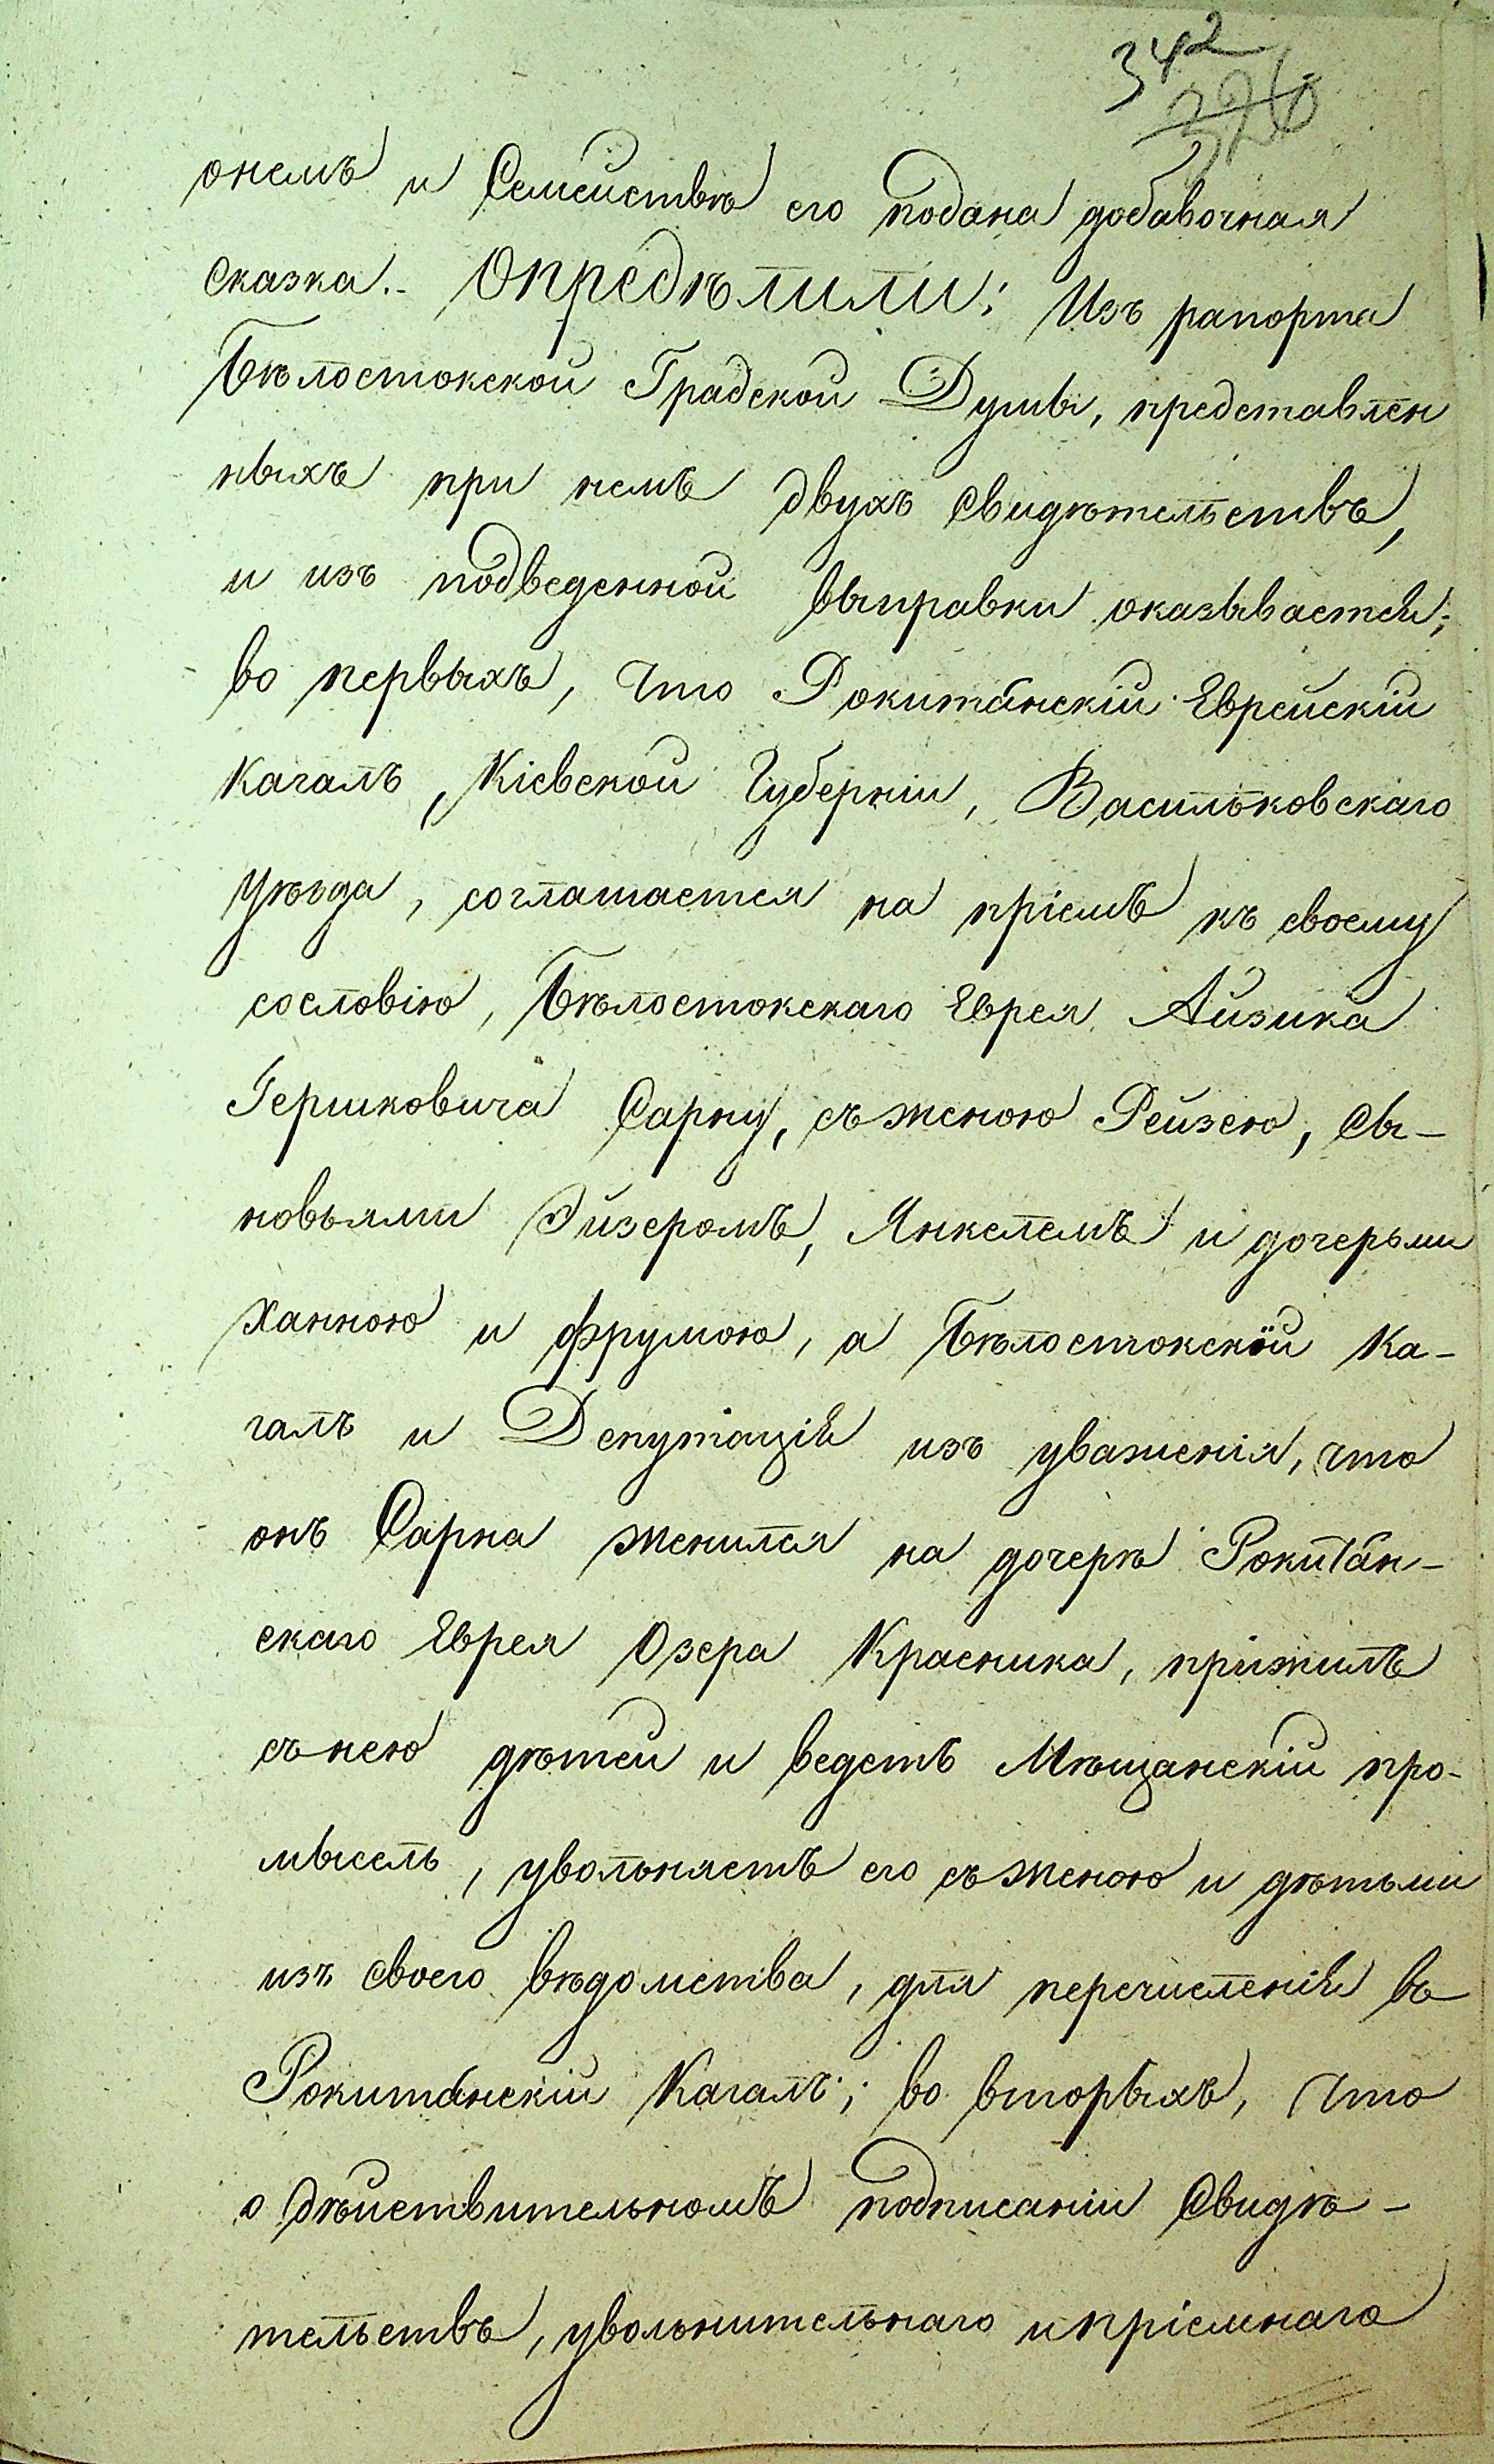 342
онемъ и Семействѣ его подана добавочная
сказка.- Опредѣлили: Изъ рапорта
Бѣлостокской Градской Думы, представлен
ныхъ при немъ двухъ свидѣтельствъ,
и изъ подведенной выправки оказывается;
во первыхъ, что Рокитанскій Еврейскій
Кагалъ, Кіевской Губерніи, Васильковскаго
уѣзда, соглашается на пріемъ къ своему
сословію, Бѣлостокскаго Еврея Айзика
Гершковича Сарну, съ женою Рейзею, сы-
новьями Эйзеромъ, Янкелемъ и дочерьми
Ханною и Фрумою, а Бѣлостокской Ка-
галъ и Депутація изъ уваженія, что
онъ Сарна женился на дочерѣ Рокитан-
скаго Еврея Озера Красника, прижилъ
съ нею дѣтей и ведетъ Мѣщанскій про-
мыселъ, увольняетъ его съ женою и дѣтьми
изъ своего вѣдомства, для перечисленія въ
Рокитанскій Кагалъ; во вторыхъ, что
о дѣйствительномъ подписаніи свидѣ-
тельствъ, увольнительнаго и пріемнаго